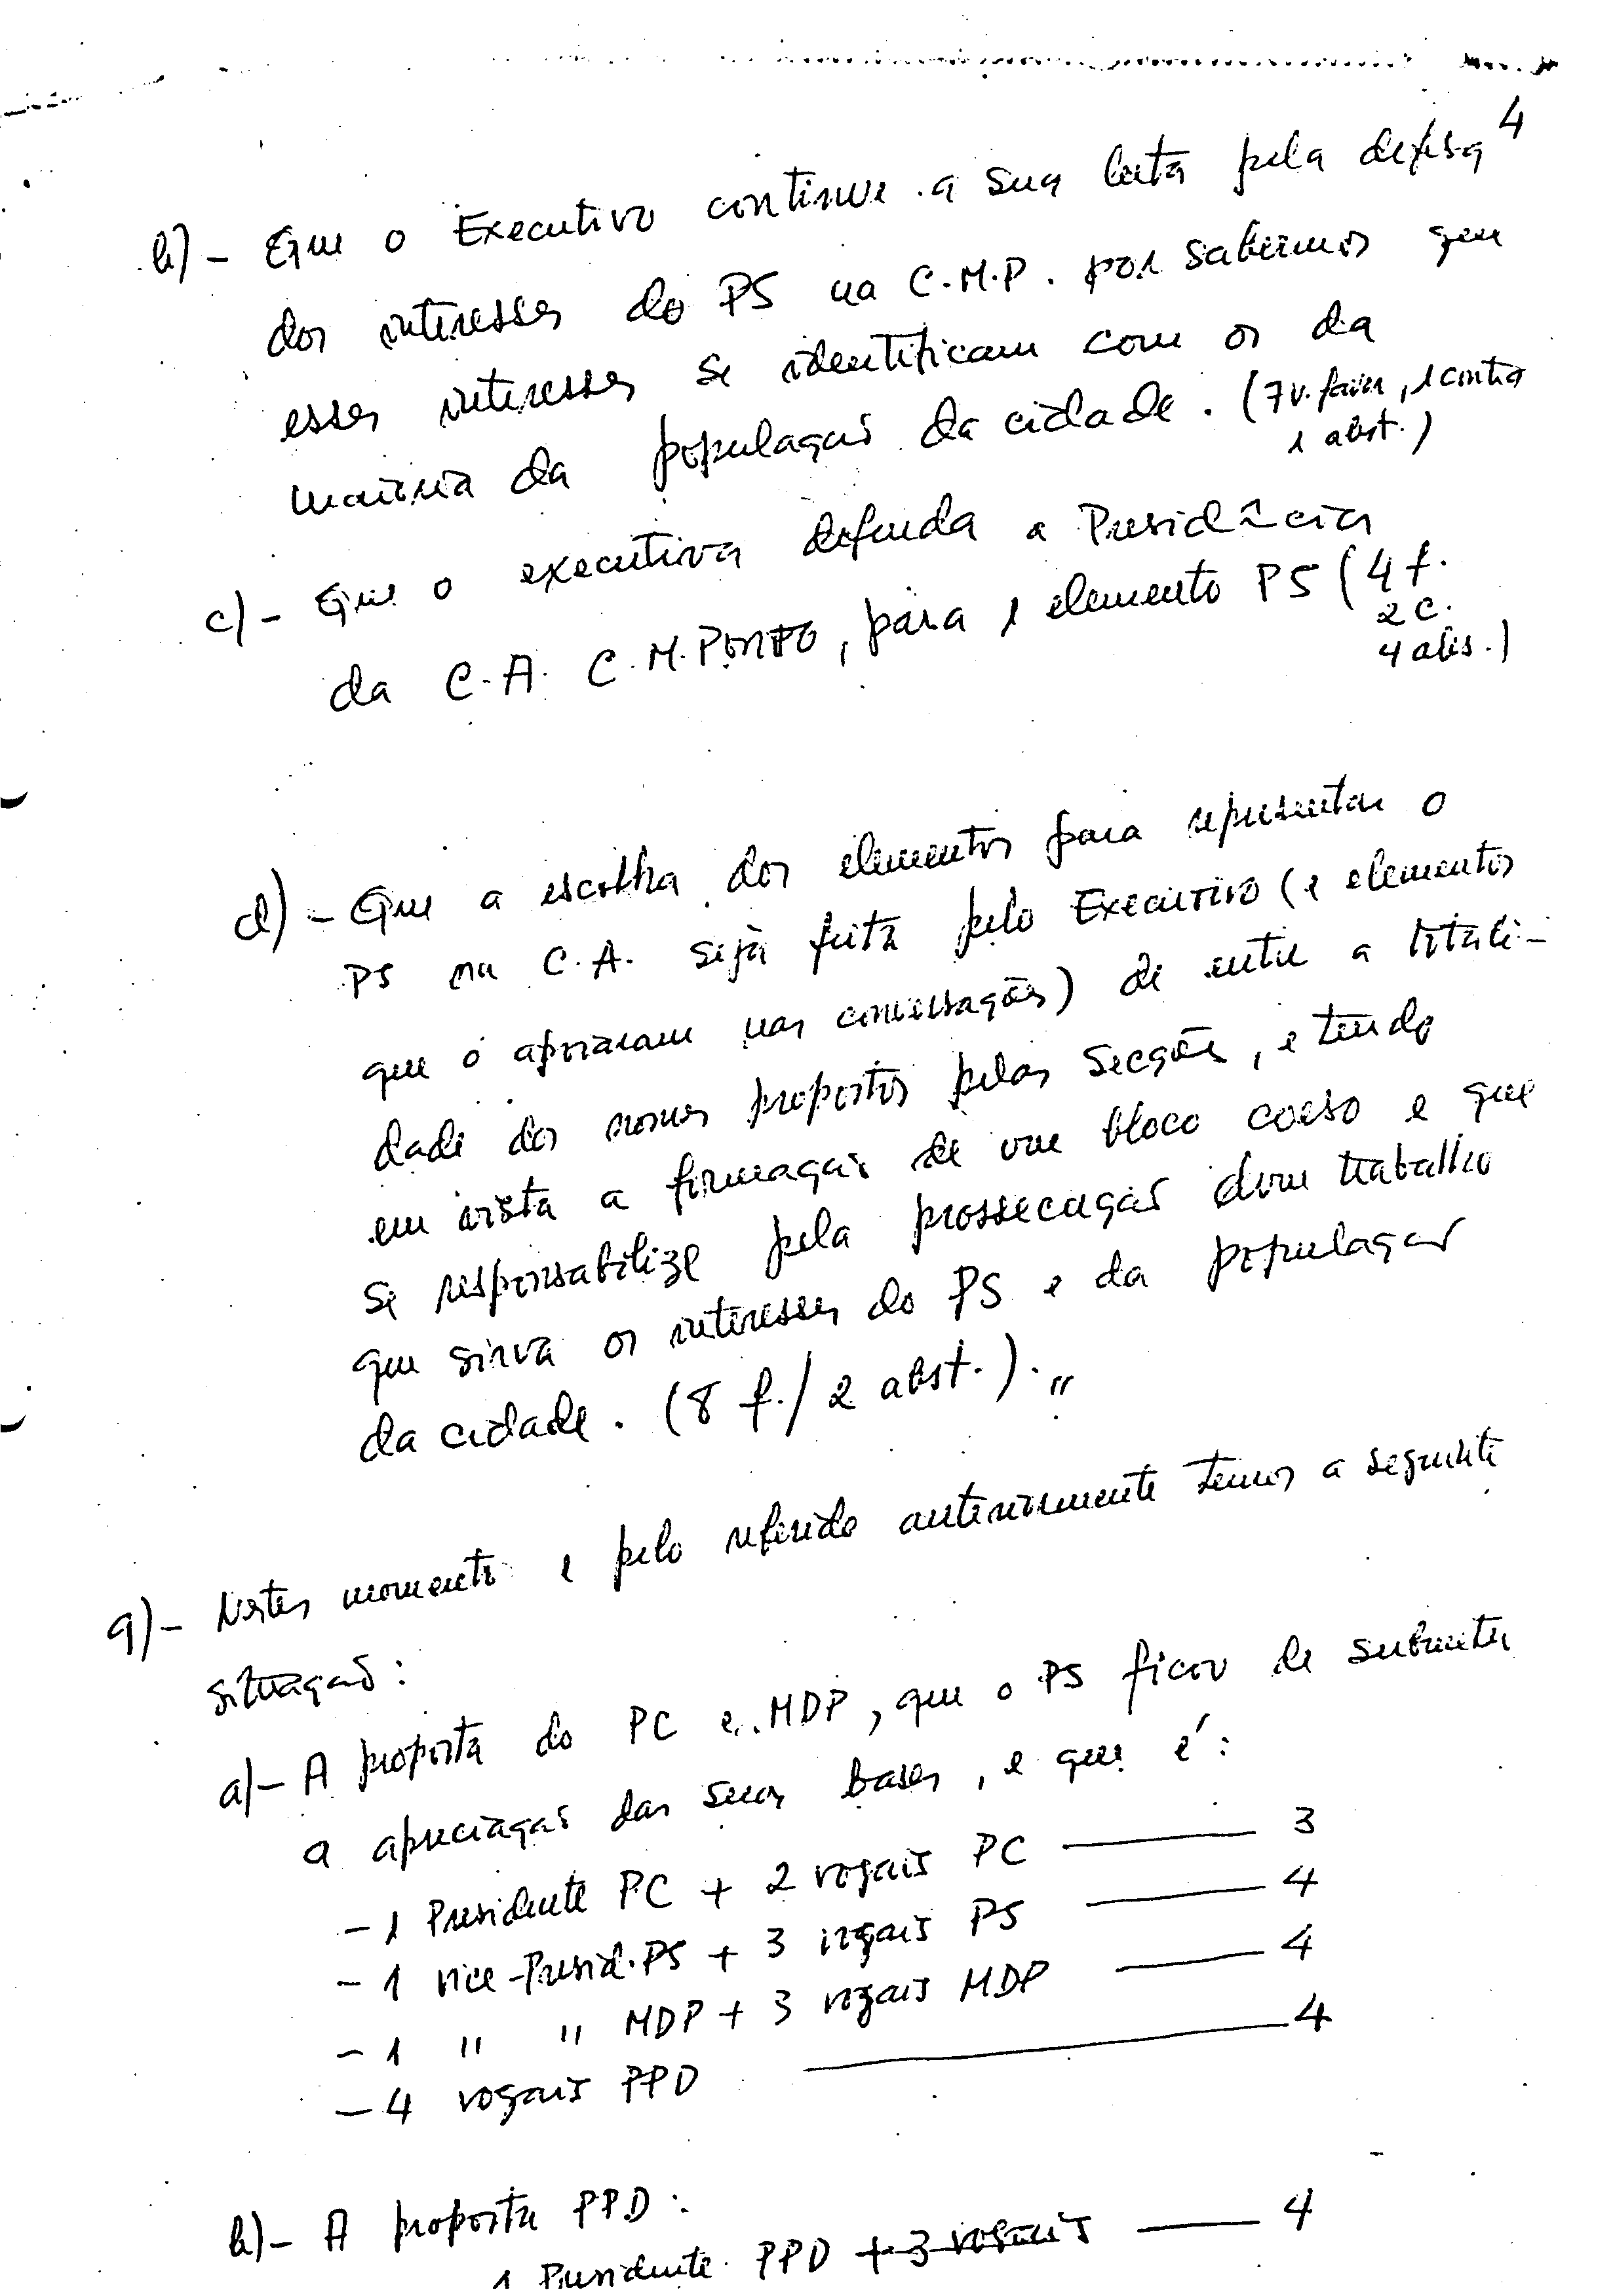 4
b)- Que o Executivo continue a sua luta pela defesa
dos interesses do PS na C.M.P. por sabermos que
esses interesses se identificam com os da
maioria da população da cidade. (7 v. favor, 1 contra
1 abst.)
c)- Que o executiva defenda a Presidência
da C.A. C.M.PORTO, para 1 elemento PS (4 f.
2 c.
4 abs.)
d)- Que a escolha dos elementos para representar o
PS na C.A. seja feita pelo Executivo (e elementos
que o apoiaram nas conversações) de entre a totali-
dade dos nomes propostos pelas Secções, e tendo
em vista a formação de um bloco coeso e que
se responsabilize pela prossecução dum trabalho
que sirva os interesses do PS e da população
da cidade. (8 f./ 2 abst.)."
9)- Nestes momento e pelo referido anteriormente temos a seguinte
situação:
a)- A proposta do PC e MDP, que o PS ficou de submeter
a apreciação das suas bases, e que é:
- 1 Presidente PC + 2 vogais PC — 3
- 1 vice-Presid. PS + 3 vogais PS — 4
- 1 " " MDP + 3 vogais MDP — 4
- 4 vogais PPD — 4
b)- A proposta PPD:
1 Presidente PPD + 3 vogais — 4